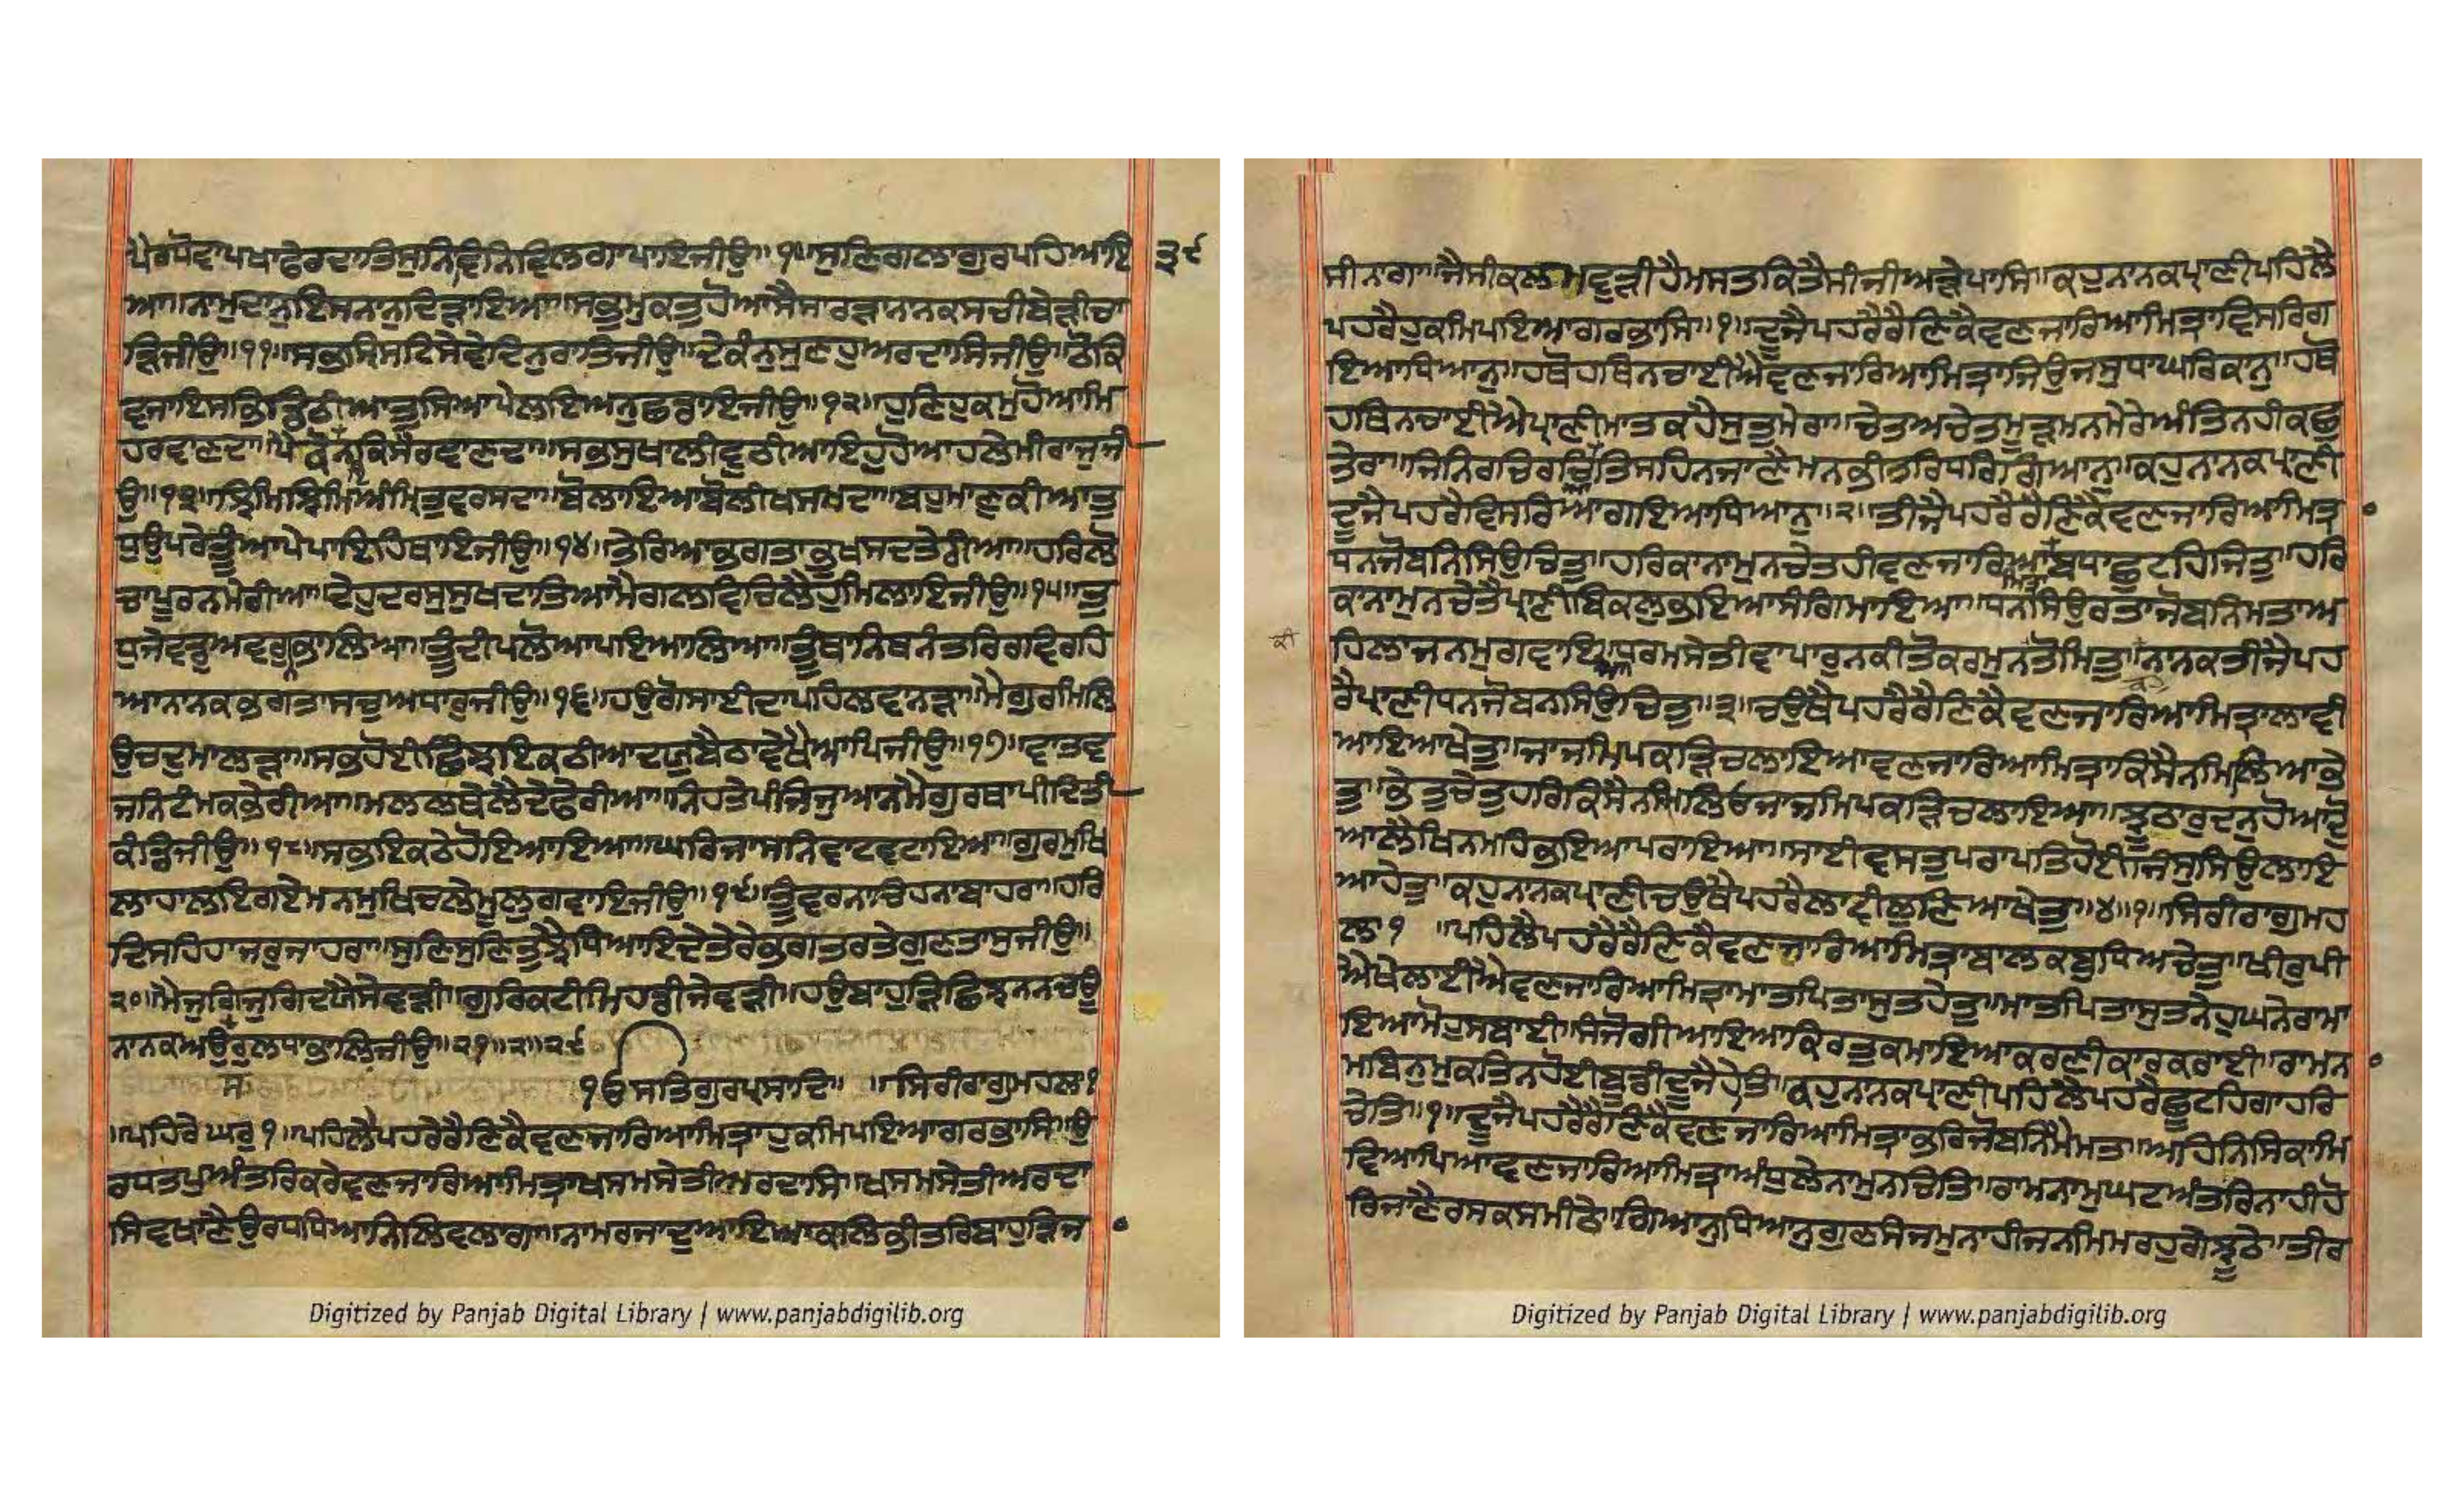 ਪੈਰਪੋਵਾਪਖਾਫੇਰਦਾਤਿਸੁਨਿਵਿਨਿਵਿਲਗਾਪਾਇਜੀਉ॥੧੦॥ਸੁਣਿਗਲਾਗੁਰਪਹਿਆਇ ੩੯
ਆ॥ਨਾਮੁਦਾਨੁਇਸਨਾਨੁਦਿੜਾਇਆ॥ਸਭੁਮੁਕਤੁਹੋਆਸੈਸਾਰੜਾਨਾਨਕਸਚੀਬੇੜੀਚਾ
ੜਿਜੀਉ॥੧੧॥ਸਭਸ੍ਰਿਸਟਿਸੇਵੇਦਿਨੁਰਾਤਿਜੀਉ॥ਦੇਕੰਨੁਸੁਣਹੁਅਰਦਾਸਿਜੀਉ॥ਠੋਕਿ
ਵਜਾਇਸਭਡਿਠੀਆਤੁਸਿਆਪੇਲਇਅਨੁਛਡਾਇਜੀਉ॥੧੨॥ਹੁਣਿਹੁਕਮੁਹੋਆਮਿ
ਹਰਵਾਣਦਾ॥ਪੈਕੋਨਕਿਸੈਰਞਾਣਦਾ॥ਸਭਸੁਖਾਲੀਵੁਠੀਆਇਹੁਹੋਆਹਲੇਮੀਰਾਜੁਜੀ
ਉ॥੧੩॥ਝਿੰਮਿਝਿੰਮਿਅੰਮ੍ਰਿਤੁਵਰਸਦਾ॥ਬੋਲਾਇਆਬੋਲੀਖਸਮਦਾ॥ਬਹੁਮਾਣੁਕੀਆਤੁ
ਧੁਉਪਰੇਤੂੰਆਪੇਪਾਇਹਿਥਾਇਜੀਉ॥੧੪॥ਤੇਰਿਆਭਗਤਾਭੁਖਸਦਤੇਰੀਆ॥ਹਰਿਲੋ
ਚਾਪੂਰਨਮੇਰੀਆ॥ਦੇਹੁਦਰਸੁਸੁਖਦਾਤਿਆਮੈਗਲਵਿਚਿਲੈਹੁਮਿਲਾਇਜੀਉ॥੧੫॥ਤੁ
ਧੁਜੇਵਡੁਅਵਰੁਨਭਾਲਿਆ॥ਤੂੰਦੀਪਲੋਅਪਇਆਲਿਆ॥ਤੂੰਥਾਨਿਥਨੰਤਰਿਰਵਿਰਹਿ
ਆਨਾਨਕਭਗਤਾਸਚੁਅਧਾਰੁਜੀਉ॥੧੬॥ਹਉਗੋਸਾਈਦਾਪਹਿਲਵਾਨੜਾ॥ਮੈਗੁਰਮਿਲਿ
ਉਚਦੁਮਾਲੜਾ॥ਸਭਹੋਈਛਿੰਝਇਕਠੀਆਦਯੁਬੈਠਾਵੇਖੈਆਪਿਜੀਉ॥੧੭॥ਵਾਤਵ
ਜਨਿਟੰਮਕਭੇਰੀਆ॥ਮਲਲਥੇਲੈਦੇਫੇਰੀਆ॥ਨਿਹਤੇਪੰਜਿਜੁਆਨਮੈਗੁਰਥਾਪੀਦਿਤੀ
ਕੰਡਿਜੀਉ॥੧੮॥ਸਭਇਕਠੇਹੋਇਆਇਆ॥ਘਰਿਜਾਸਨਿਵਾਟਵਟਾਇਆ॥ਗੁਰਮੁਖਿ
ਲਾਹਾਲਇਗਏਮਨਮੁਖਿਚਲੇਮੂਲੁਗਵਾਇਜੀਉ॥੧੯॥ਤੂੰਵਰਨਾਚਿਹਨਾਬਾਹਰਾ॥ਹਰਿ
ਦਿਸਹਿਹਾਜਰੁਜਾਹਰਾ॥ਸੁਣਿਸੁਣਿਤੁਝੈਧਿਆਇਦੇਤੇਰੇਭਗਤਰਤੇਗੁਣਤਾਸੁਜੀਉ॥
੨੦॥ਮੈਜੁਗਿਜੁਗਿਦਯੈਸੇਵੜੀ॥ਗੁਰਿਕਟੀਮਿਹਡੀਜੇਵੜੀ॥ਹਉਬਾਹੁੜਿਛਿੰਝਨਨਚਉ
ਨਾਨਕਅਉਰੁਲਧਾਭਾਲਿਜੀਉ॥੨੧॥੨॥੨੯
ੴਸਤਿਗੁਰਪ੍ਰਸਾਦਿ॥ ॥ਸਿਰੀਰਾਗੁਮਹਲਾ੧
॥ਪਹਿਰੇਘਰੁ੧॥ਪਹਿਲੈਪਹਰੈਰੈਣਿਕੈਵਣਜਾਰਿਆਮਿਤ੍ਰਾਹੁਕਮਿਪਇਆਗਰਭਾਸਿ॥ਉ
ਰਧਤਪੁਅੰਤਰਿਕਰੇਵਣਜਾਰਿਆਮਿਤ੍ਰਾਖਸਮਸੇਤੀਅਰਦਾਸਿ॥ਖਸਮਸੇਤੀਅਰਦਾ
ਸਿਵਖਾਣੈਉਰਧਧਿਆਨਿਲਿਵਲਾਗਾ॥ਨਾਮਰਜਾਦੁਆਇਆਕਲਿਭੀਤਰਿਬਾਹੁੜਿਜ
ਸੀਨਾਗਾ॥ਜੈਸੀਕਲਮਵੁੜੀਹੈਮਸਤਕਿਤੈਸੀਜੀਅੜੇਪਾਸਿ॥ਕਹੁਨਾਨਕਪ੍ਰਾਣੀਪਹਿਲੈ
ਪਹਰੈਹੁਕਮਿਪਇਆਗਰਭਾਸਿ॥੧॥ਦੂਜੈਪਹਰੈਰੈਣਿਕੈਵਣਜਾਰਿਆਮਿਤ੍ਰਾਵਿਸਰਿਗ
ਇਆਧਿਆਨੁ॥ਹਥੋਹਥਿਨਚਾਈਐਵਣਜਾਰਿਆਮਿਤ੍ਰਾਜਿਉਜਸੁਧਾਘਰਿਕਾਨੁ॥ਹਥੋ
ਹਥਿਨਚਾਈਐਪ੍ਰਾਣੀਮਾਤਕਹੈਸੁਤੁਮੇਰਾ॥ਚੇਤਅਚੇਤਮੂੜਮਨਮੇਰੇਅੰਤਿਨਹੀਕਛੁ
ਤੇਰਾ॥ਜਿਨਿਰਚਿਰਚਿਤਿਸਹਿਨਜਾਣੈਮਨਭੀਤਰਿਧਰਿਗਿਆਨੁ॥ਕਹੁਨਾਨਕਪ੍ਰਾਣੀ
ਦੂਜੈਪਹਰੈਵਿਸਰਿਆਗਇਆਧਿਆਨੁ॥੨॥ਤੀਜੈਪਹਰੈਰੈਣਿਕੈਵਣਜਾਰਿਆਮਿਤ੍ਰ
ਧਨਜੋਬਨਿਸਿਉਚਿਤੁ॥ਹਰਿਕਾਨਾਮੁਨਚੇਤਹੀਵਣਜਾਰਿਆਬਧਾਛੁਟਹਿਜਿਤੁ॥ਹਰਿ
ਕਾਨਾਮੁਨਚੇਤੈਪ੍ਰਾਣੀਬਿਕਲੁਭਇਆਸੰਗਿਮਾਇਆ॥ਧਨਸਿਉਰਤਾਜੋਬਨਿਮਤਾਅ
ਹਿਲਾਜਨਮੁਗਵਾਇਆਧਰਮਸੇਤੀਵਾਪਾਰੁਨਕੀਤੋਕਰਮੁਨਤੋਮਿਤੁ॥ਨਾਨਕਤੀਜੈਪਹ
ਰੈਪ੍ਰਾਣੀਧਨਜੋਬਨਸਿਉਚਿਤੁ॥੩॥ਚਉਥੈਪਹਰੈਰੈਣਿਕੈਵਣਜਾਰਿਆਮਿਤ੍ਰਾਲਾਵੀ
ਆਇਆਖੇਤੁ॥ਜਾਜਮਿਪਕੜਿਚਲਾਇਆਵਣਜਾਰਿਆਮਿਤ੍ਰਾਕਿਸੈਨਮਿਲਿਆਭੇ
ਤੁ॥ਭੇਤੁਚੇਤੁਹਰਿਕਿਸੈਨਮਿਲਿਓਜਾਜਮਿਪਕੜਿਚਲਾਇਆ॥ਝੂਠਾਰੁਦਨੁਹੋਆਦੋ
ਆਲੈਖਿਨਮਹਿਭਇਆਪਰਾਇਆ॥ਸਾਈਵਸਤੁਪਰਾਪਤਿਹੋਈਜਿਸੁਸਿਉਲਾਇ
ਆਹੇਤੁ॥ਕਹੁਨਾਨਕਪ੍ਰਾਣੀਚਉਥੈਪਹਰੈਲਾਵੀਲੁਣਿਆਖੇਤੁ॥੪॥੧॥ਸਿਰੀਰਾਗੁਮਹ
ਲਾ੧ ॥ਪਹਿਲੈਪਹਰੈਰੈਣਿਕੈਵਣਜਾਰਿਆਮਿਤ੍ਰਾਬਾਲਕਬੁਧਿਅਚੇਤੁ॥ਖੀਰੁਪੀ
ਐਖੇਲਾਈਐਵਣਜਾਰਿਆਮਿਤ੍ਰਾਮਾਤਪਿਤਾਸੁਤਹੇਤੁ॥ਮਾਤਪਿਤਾਸੁਤਨੇਹੁਘਨੇਰਾਮਾ
ਇਆਮੋਹੁਸਬਾਈ॥ਸੰਜੋਗੀਆਇਆਕਿਰਤੁਕਮਾਇਆਕਰਣੀਕਾਰਕਰਾਈ॥ਰਾਮਨ
ਮਬਿਨੁਮੁਕਤਿਨਹੋਈਬੁਡੀਦੂਜੈਹੇਤਿ॥ਕਹੁਨਾਨਕਪ੍ਰਾਣੀਪਹਿਲੈਪਹਰੈਛੂਟਹਿਗਾਹਰਿ
ਚੇਤਿ॥੧॥ਦੂਜੈਪਹਰੈਰੈਣਿਕੈਵਣਜਾਰਿਆਮਿਤ੍ਰਾਭਰਿਜੋਬਨਿਮੈਮਤਾ॥ਅਹਿਨਿਸਿਕਾਮਿ
ਵਿਆਪਿਆਵਣਜਾਰਿਆਮਿਤ੍ਰਾਅੰਧੁਲੇਨਾਮੁਨਚਿਤਿ॥ਰਾਮਨਾਮੁਘਟਅੰਤਰਿਨਾਹੀਹੋ
ਰਿਜਾਣੈਰਸਕਸਮੀਠੇ॥ਗਿਆਨੁਧਿਆਨੁਗੁਣਸੰਜਮੁਨਾਹੀਜਨਮਿਮਰਹੁਗੇਝੂਠੇ॥ਤੀਰ
Digitized by Panjab Digital Library | www.panjabdigilib.org
Digitized by Panjab Digital Library | www.panjabdigilib.org